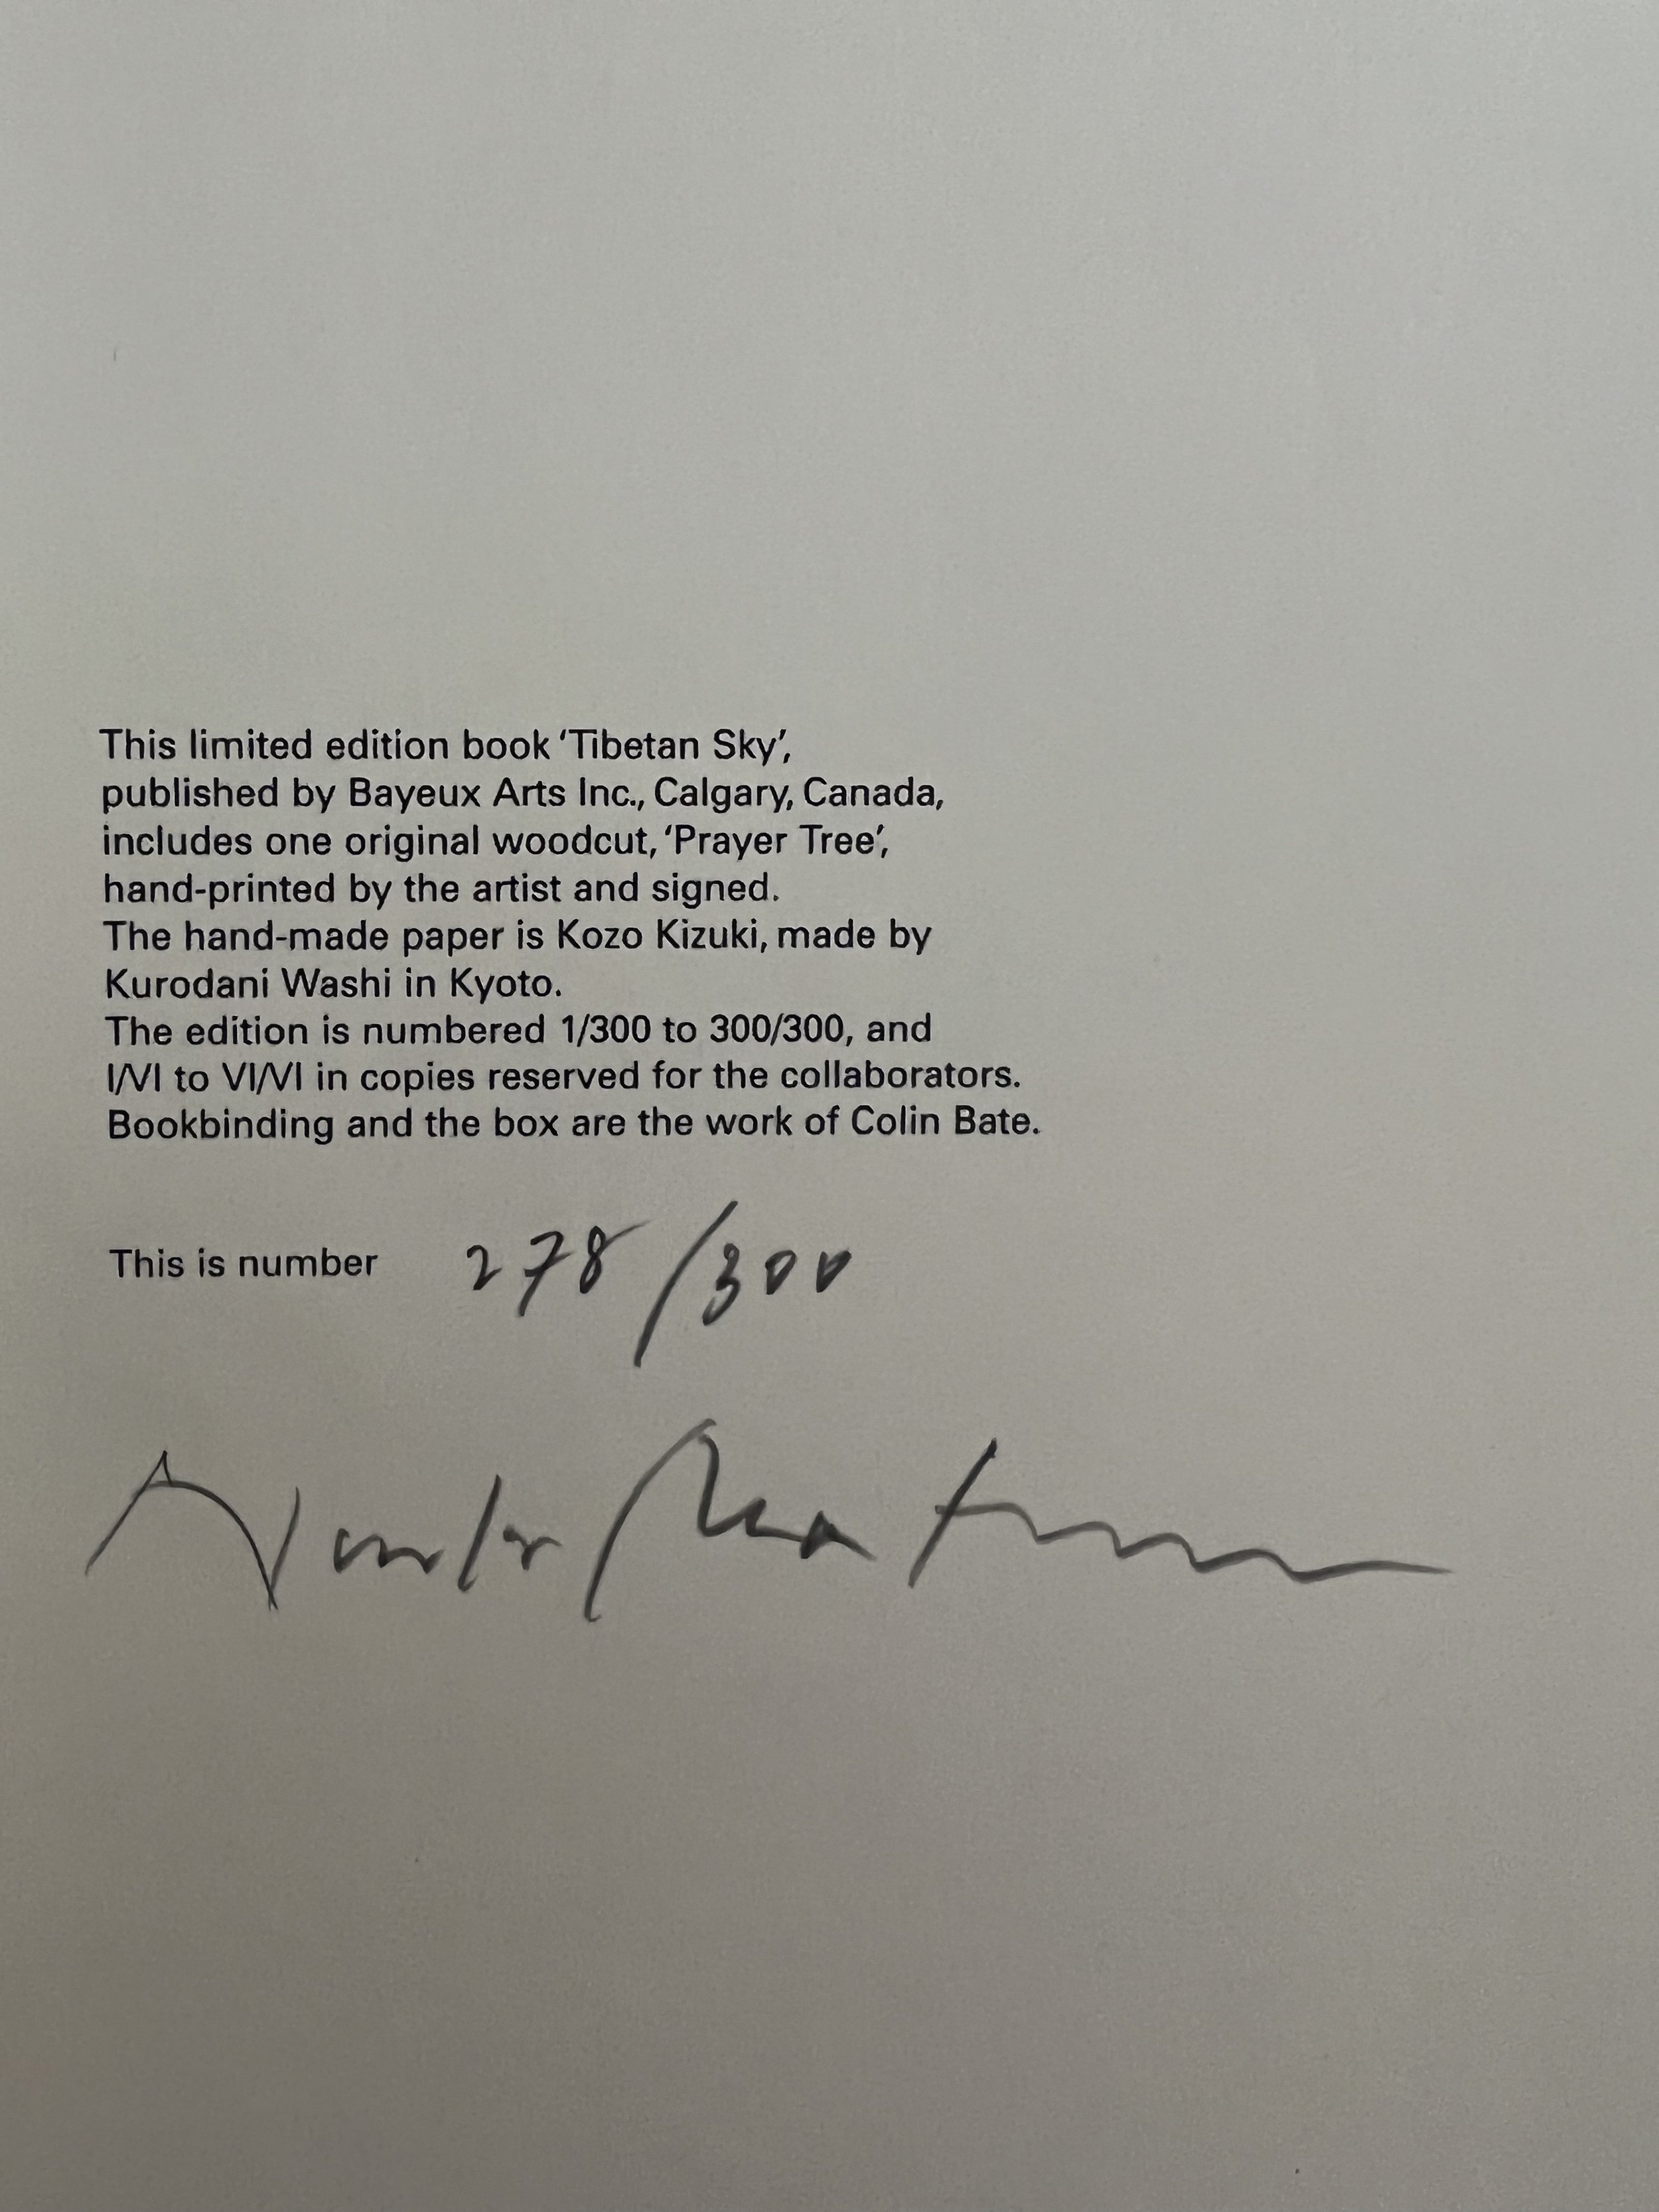 This limited edition book ‘Tibetan Sky’,
published by Bayeux Arts Inc., Calgary, Canada,
includes one original woodcut, ‘Prayer Tree’,
hand-printed by the artist and signed.
The hand-made paper is Kozo Kizuki, made by
Kurodani Washi in Kyoto.
The edition is numbered 1/300 to 300/300, and
I/VI to VI/VI in copies reserved for the collaborators.
Bookbinding and the box are the work of Colin Bate.
This is number 278/300